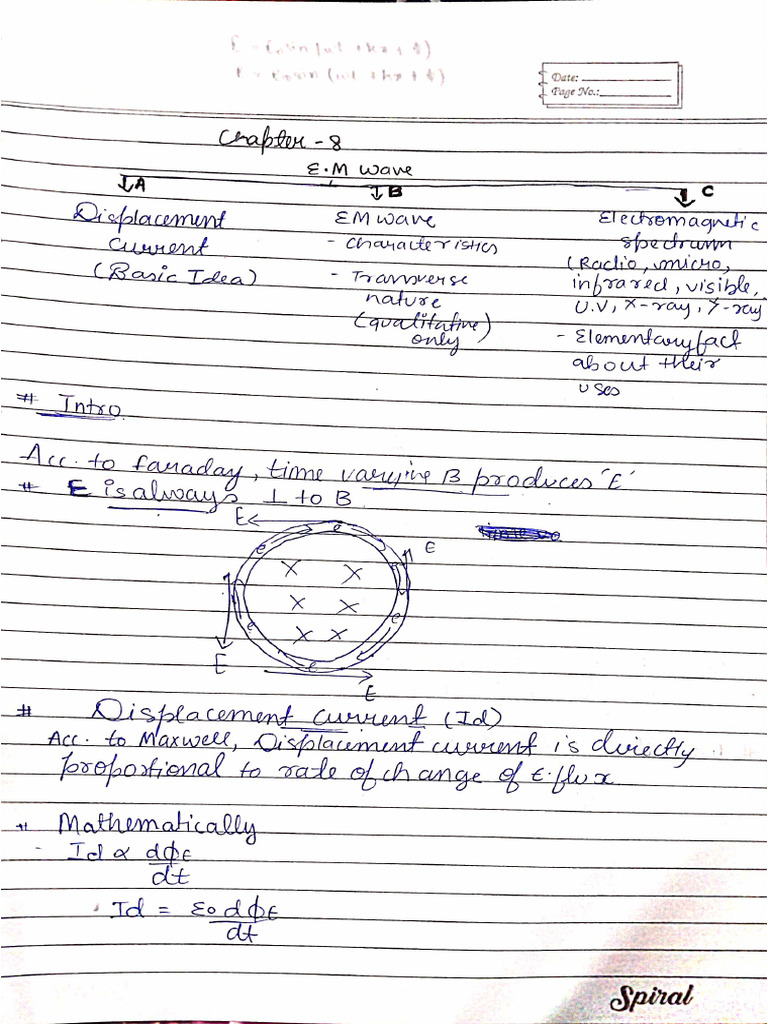 Date:
Page No.:
Chapter - 8
E.M wave
A
Displacement
current
(Basic Idea)
B
EM wave
- Characteristics
- Transverse
nature
(qualitative)
only
C
Electromagnetic
spectrum
(Radio, micro,
infrared, visible,
U.V, X-ray, γ-ray
- Elementary fact
about their
uses
# Intro
Acc. to faraday, time varying B produces 'E'
# E is always ⊥ to B
E
e
e
E
X X
X X
e
e
X X
E
e
E
# Displacement current (Id)
Acc. to Maxwell, Displacement current is directly
proportional to rate of change of E.flux
# Mathematically
- Id ∝ dϕE
dt
Id = ε0 dϕE
dt
Spiral